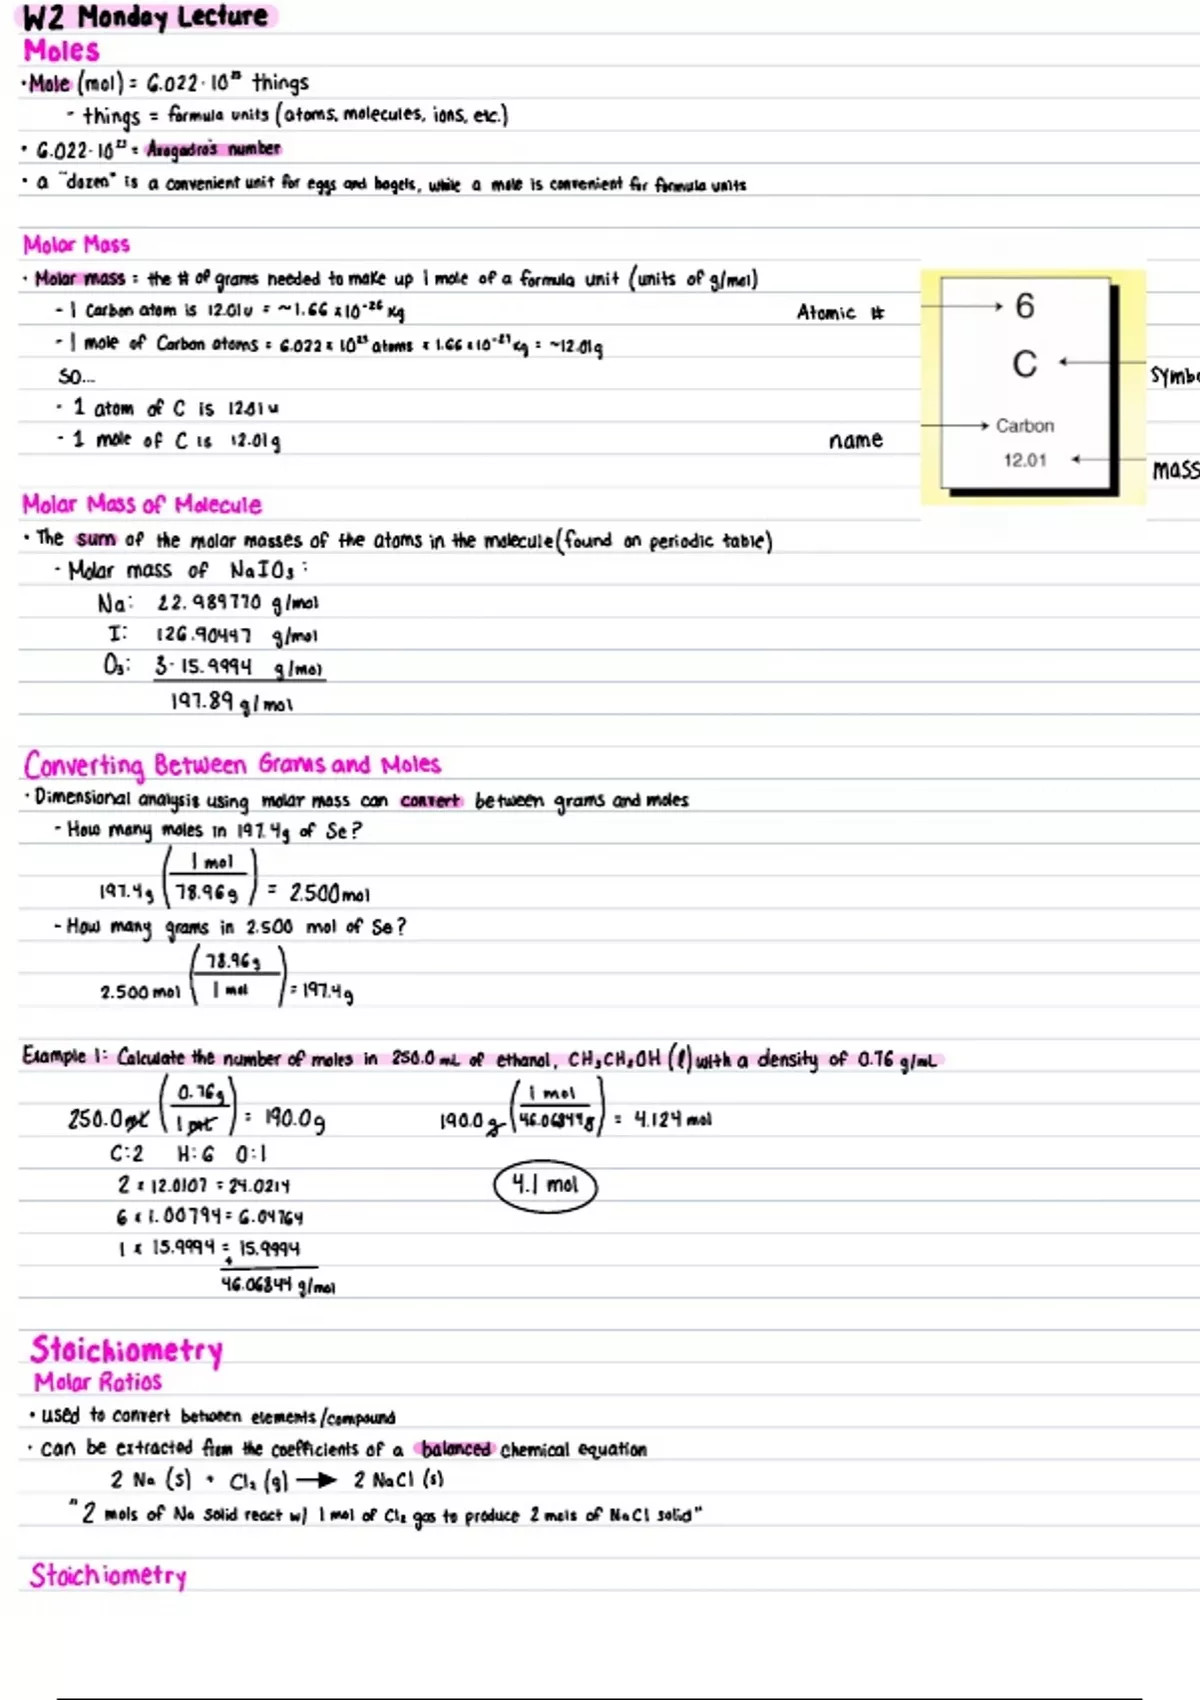 W2 Monday Lecture
Moles
· Mole (mol) = 6.022 · 10²³ things
- things = formula units (atoms, molecules, ions, etc.)
· 6.022 · 10²³ = Avogadro's number
· a "dozen" is a convenient unit for eggs and bagels, while a mole is convenient for formula units
Molar Mass
· Molar mass = the # of grams needed to make up 1 mole of a formula unit (units of g/mol)
- 1 Carbon atom is 12.01u = ~1.66 x 10⁻²⁶ kg
- 1 mole of Carbon atoms = 6.022 x 10²³ atoms x 1.66 x 10⁻²⁷ kg = ~12.01g
so...
- 1 atom of C is 12.01u
- 1 mole of C is 12.01g
Atomic #
6
C
symbo
name
Carbon
12.01
mass
Molar Mass of Molecule
· The sum of the molar masses of the atoms in the molecule (found on periodic table)
- Molar mass of NaIO₃:
Na: 22.989770 g/mol
I: 126.90447 g/mol
O₃: 3 · 15.9994 g/mol
197.89 g/mol
Converting Between Grams and Moles
· Dimensional analysis using molar mass can convert between grams and moles
- How many moles in 197.4g of Se?
197.4g (1 mol / 78.96g) = 2.500 mol
- How many grams in 2.500 mol of Se?
2.500 mol (78.96g / 1 mol) = 197.4g
Example 1: Calculate the number of moles in 250.0 mL of ethanol, CH₃CH₂OH (l) with a density of 0.76 g/mL
250.0 mL (0.76g / 1 mL) = 190.0g
190.0 g (1 mol / 46.06844g) = 4.124 mol
C:2 H:6 O:1
2 x 12.0107 = 24.0214
4.1 mol
6 x 1.00794 = 6.04764
1 x 15.9994 = 15.9994
+
46.06844 g/mol
Stoichiometry
Molar Ratios
· used to convert between elements/compound
· can be extracted from the coefficients of a balanced chemical equation
2 Na (s) + Cl₂ (g) → 2 NaCl (s)
"2 mols of Na solid react w/ 1 mol of Cl₂ gas to produce 2 mols of NaCl solid"
Stoichiometry